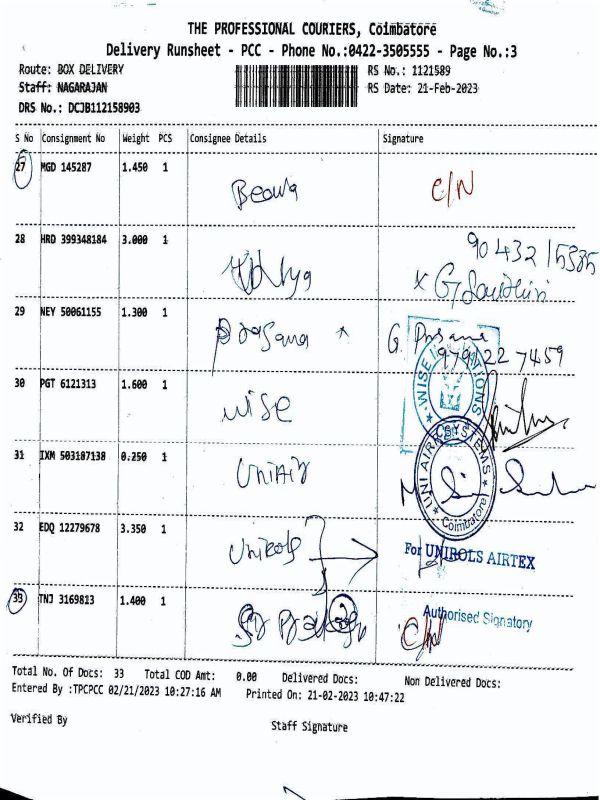 THE PROFESSIONAL COURIERS, Coimbatore
Delivery Runsheet - PCC - Phone No.:0422-3505555 - Page No.:3
Route: BOX DELIVERY RS No.: 1121589
Staff: NAGARAJAN RS Date: 21-Feb-2023
DRS No.: DCJB112158903
S No Consignment No Weight PCS Consignee Details Signature
27 MGD 145287 1.450 1 Beowa C/N
28 HRD 399348184 3.000 1
90432 15335
29 NEY 50061155 1.300 1 Prasana x G. Prsana
97912 27459
30 PGT 6121313 1.600 1 WISE
WISE
31 IXM 503187138 0.250 1 UniAir
UNI AIR SYSTEMS Coimbatore
32 EDQ 12279678 3.350 1 Unirols For UNIROLS AIRTEX
33 TNJ 3169813 1.400 1 Authorised Signatory
Total No. Of Docs: 33 Total COD Amt: 0.00 Delivered Docs: Non Delivered Docs:
Entered By :TPCPCC 02/21/2023 10:27:16 AM Printed On: 21-02-2023 10:47:22
Verified By Staff Signature